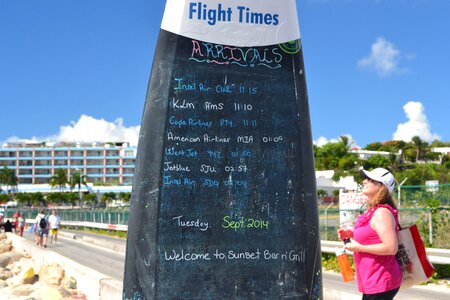 Flight Times
ARRIVALS
Insel Air CUR 11:15
KLM AMS 11:10
Copa Airlines PTY 11:51
American Airlines MIA 01:00
WestJet YYZ 01:50
Jetblue SJU 02:57
Insel Air SDQ 03:00
Tuesday. Sept. 2014
Welcome to Sunset Bar n' Grill